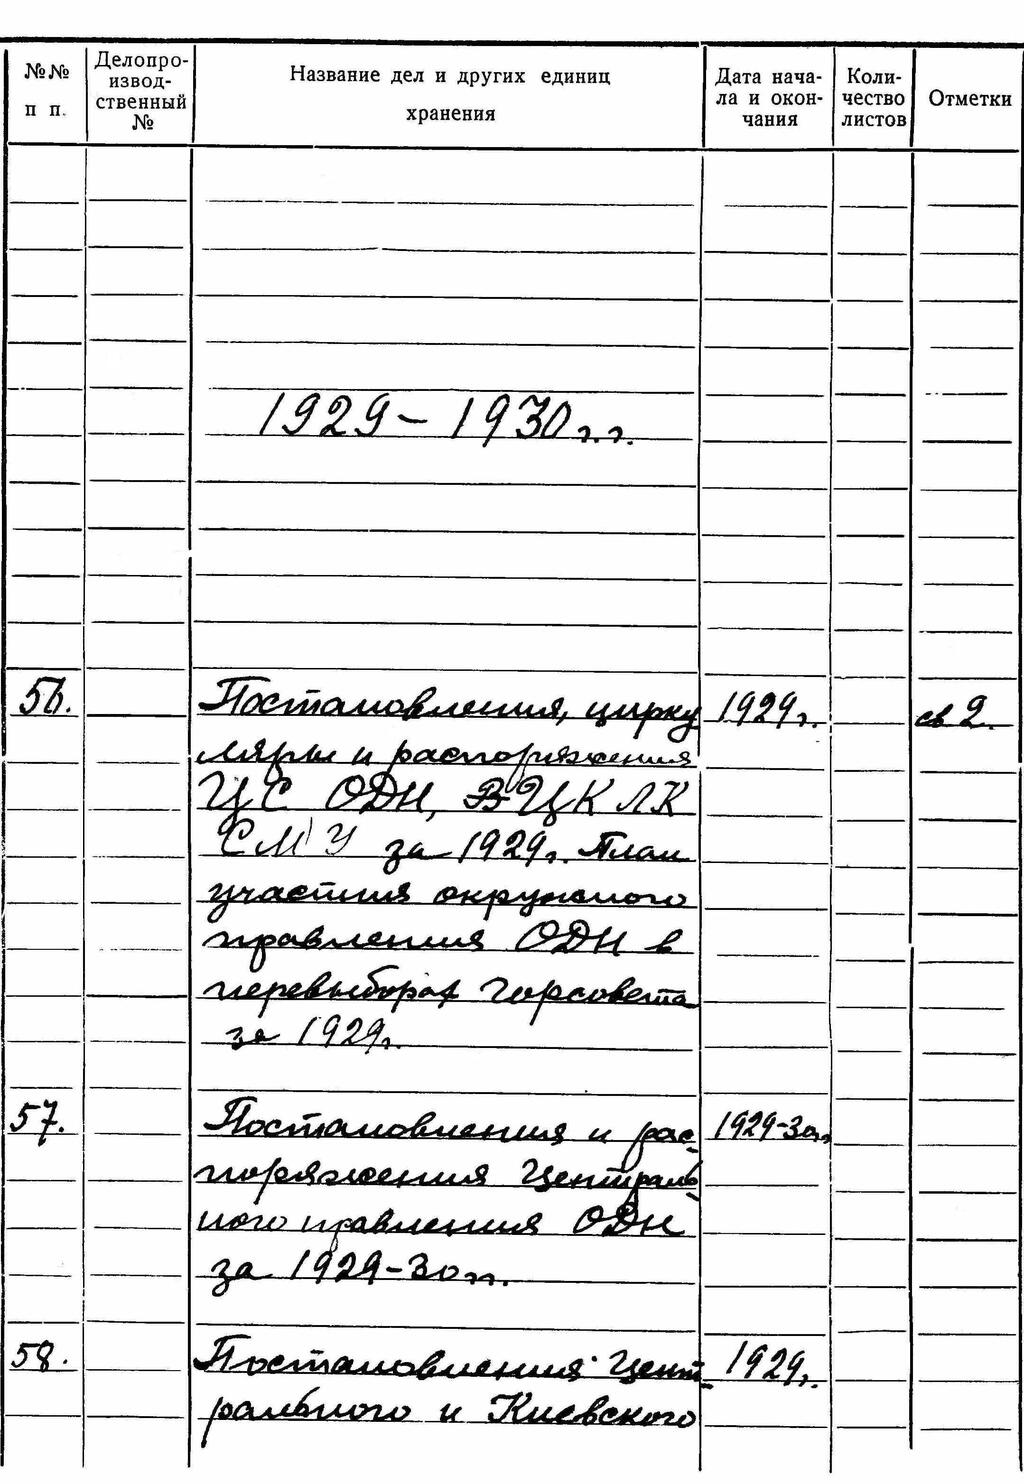 №№ п п.
Делопро-
извод-
ственный
№
Название дел и других единиц
хранения
Дата нача-
ла и окон-
чания
Коли-
чество
листов
Отметки
1929 – 1930 г.г.
56. Постановления, цирку 1929 г. св 2.
ляры и распоряжения
ЦС ОДН, ВЦК ЛК
СМУ за 1929 г. План
участия окружного
правления ОДН в
перевыборах Горсовета
за 1929 г.
57. Постановления и рас- 1929-30 гг
поряжения Централь-
ного правления ОДН
за 1929-30 гг.
58. Постановления Цент- 1929 г.
рального и Киевского